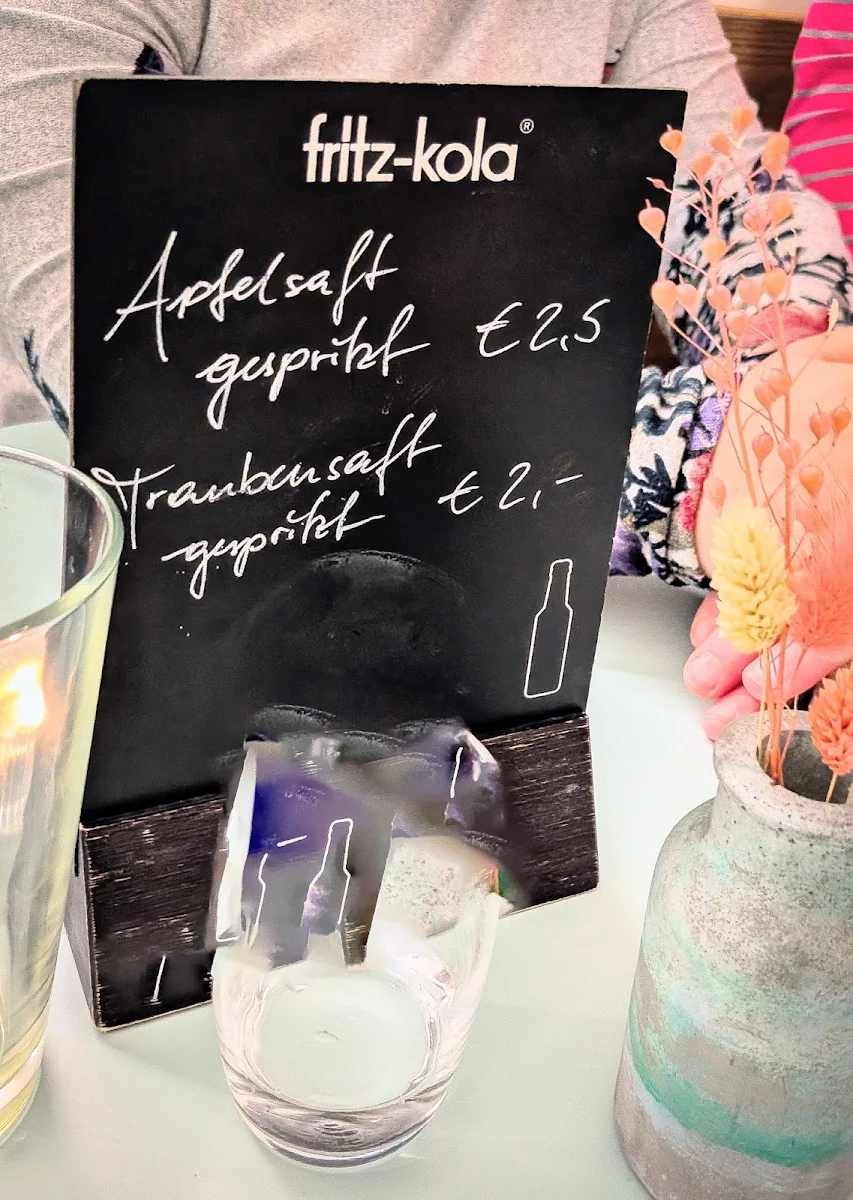 fritz-kola®
Apfelsaft
gespritzt € 2,5
Traubensaft
gespritzt € 2,-